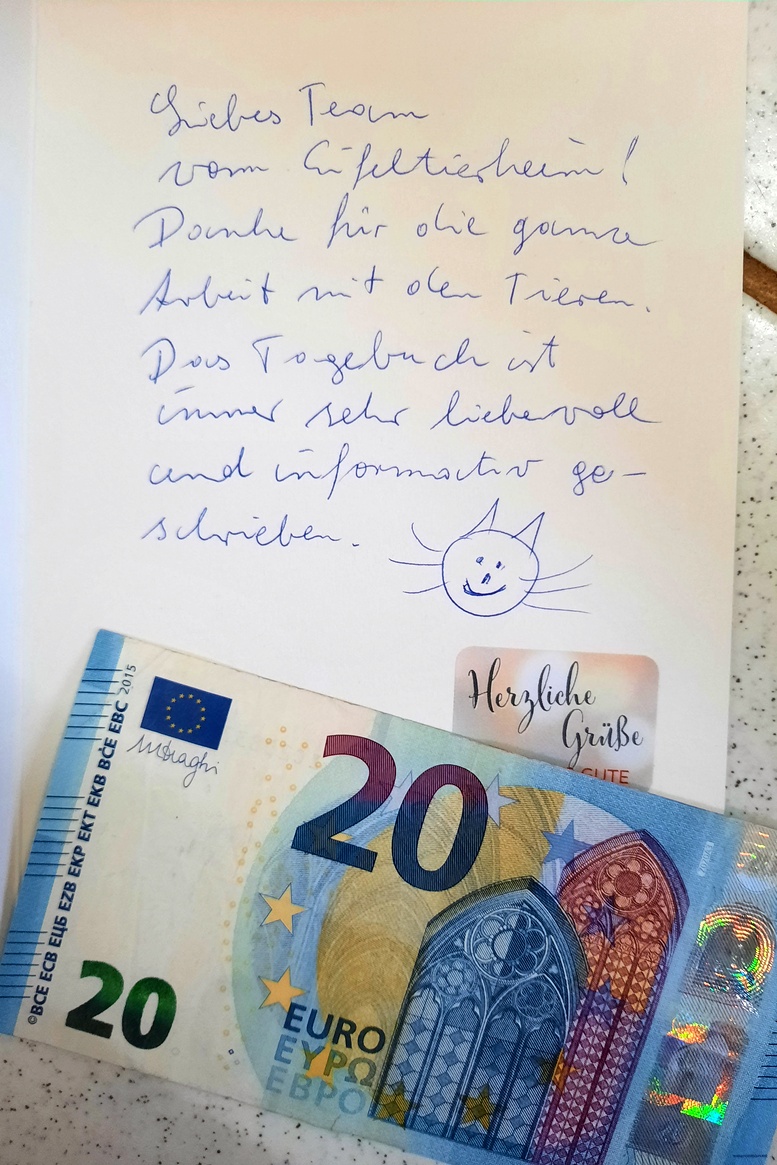 Liebes Team
vom Eifeltierheim!
Danke für die ganze
Arbeit mit den Tieren.
Das Tagebuch ist
immer sehr liebevoll
und informativ ge-
schrieben.
Herzliche
Grüße
GUTE
©BCE ECB ЕЦБ EZB EKP EKT EKB BĊE EBC 2015
MDraghi
20
20
EURO
ΕΥΡΩ
ЕВРО